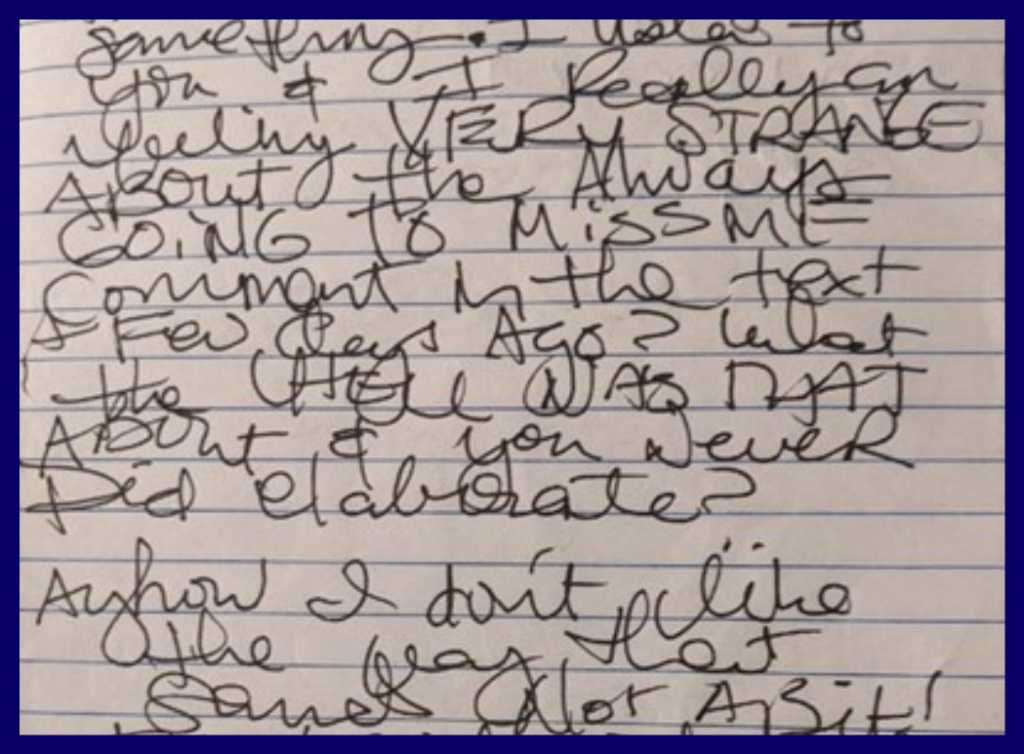 something. I
you & I Really am
feeling VERY STRANGE
ABOUT the Always
GOiNG TO MiSS ME
Comment in the text
A FEW days AGO? what
the HELL WAS THAT
ABOUT & you NeveR
Did elaborate?
Anyhow I don't like
the way that
Sounds Not A Bit!